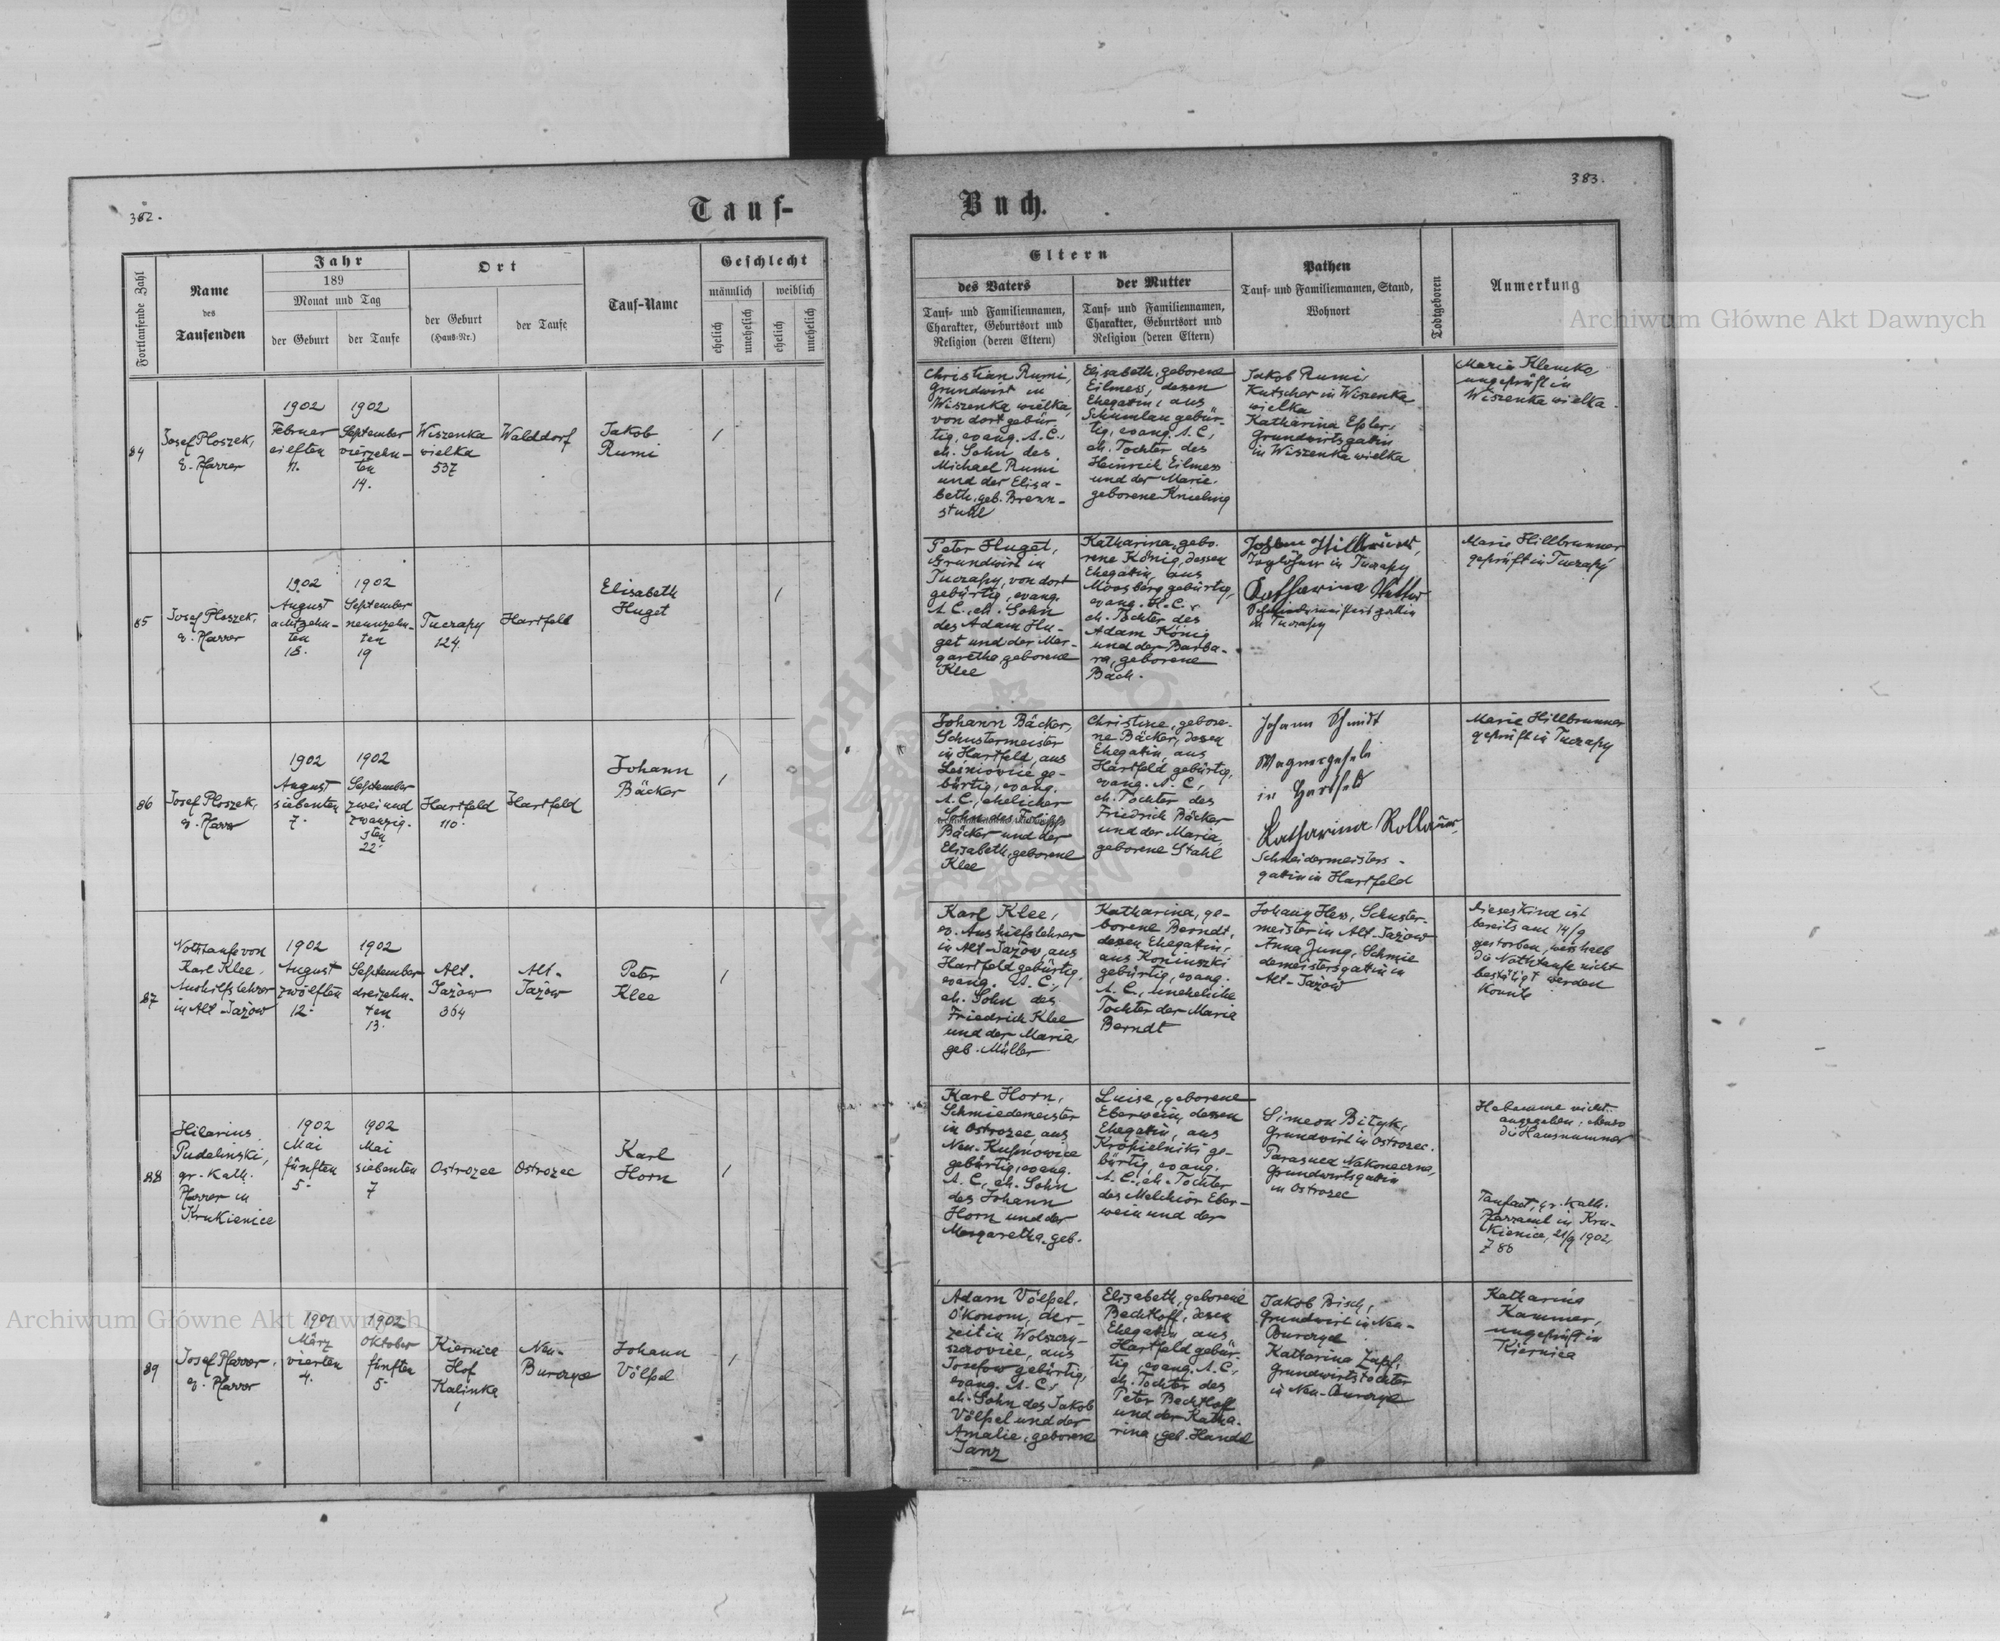 382.
Tauf-
Fortlaufende Zahl
Name
des
Taufenden
Jahr
189
Monat und Tag
der Geburt
der Taufe
Ort
der Geburt
(Haus-Nr.)
der Taufe
Tauf-Name
Geschlecht
männlich
weiblich
ehelich
unehelich
ehelich
unehelich
84
Josef Ploszek,
e. Pfarrer
1902
Februar
eilften
11.
1902
September
vierzehn-
ten
14.
Wiszenka
wielka
537
Walddorf
Jakob
Rumi
1
85
Josef Ploszek,
e. Pfarrer
1902
August
achtzehn-
ten
18.
1902
September
neunzehn-
ten
19
Tuczapy
124.
Hartfeld
Elisabeth
Huget
1
86
Josef Ploszek,
e. Pfarrer
1902
August
siebenten
7.
1902
September
zwei und
zwanzig-
sten
22.
Hartfeld
110.
Hartfeld
Johann
Bäcker
1
87
Nothtaufe von
Karl Klee,
Aushilfslehrer
in Alt-Jażów
1902
August
zwölften
12.
1902
September
dreizehn-
ten
13.
Alt-
Jażów
364
Alt-
Jażów
Peter
Klee
1
88
Hilarius
Pudelinski,
gr. Kath.
Pfarrer in
Krukienice
1902
Mai
fünften
5.
1902
Mai
siebenten
7
Ostrozec
Ostrozec
Karl
Horn
1
89
Josef Pfarrer,
e. Pfarrer
1901
März
vierten
4.
1902
Oktober
fünften
5.
Kiernica
Hof
Kalinka
1
Neu-
Burczyce
Johann
Völpel
1
383.
Buch.
Eltern
des Vaters
Tauf- und Familiennamen,
Charakter, Geburtsort und
Religion (deren Eltern)
der Mutter
Tauf- und Familiennamen,
Charakter, Geburtsort und
Religion (deren Eltern)
Pathen
Tauf- und Familiennamen, Stand,
Wohnort
Todtgeboren
Anmerkung
Christian Rumi,
Grundwirt in
Wiszenka wielka,
von dort gebür-
tig, evang. A.C.,
eh. Sohn des
Michael Rumi
und der Elisa-
beth, geb. Brenn-
stuhl
Elisabeth, geborene
Eilmess, dessen
Ehegatin, aus
Schumlau gebür-
tig, evang. A.C.,
eh. Tochter des
Heinrich Eilmess
und der Marie,
geborene Knieling
Jakob Rumi,
Kutscher in Wiszenka
wielka
Katharina Eßler,
Grundwirtsgatin
in Wiszenka wielka
Maria Klemko
ungeprüft in
Wiszenka wielka
Peter Huget,
Grundwirt in
Tuczapy, von dort
gebürtig, evang.
A.C., eh. Sohn
des Adam Hu-
get und der Mar-
garetha, geborene
Klee
Katharina, gebo-
rene König, dessen
Ehegatin, aus
Moosberg gebürtig,
evang. H.C.,
eh. Tochter des
Adam König
und der Barba-
ra, geborene
Bäch.
Taglöhner in Tuczapy
Katharina
Schmiedmeistersgattin
in Tuczapy
Marie Hillbrunner
geprüft in Tuczapy
Johann Bäcker,
Schustermeister
in Hartfeld, aus
Leśniovice ge-
bürtig, evang.
A.C., ehelicher
Sohn des
Bäcker und der
Elisabeth, geborene
Klee
Christine, gebore-
ne Bäcker, dessen
Ehegatin, aus
Hartfeld gebürtig,
evang. A.C.,
eh. Tochter des
Friedrich Bäcker
und der Maria,
geborene Stahl
Johann Schmidt
Wagnergeselle
in Hartfeld
Katharina
Schneidermeisters-
gatin in Hartfeld
Marie Hillbrunner
geprüft in Tuczapy
Karl Klee,
ev. Aushilfslehrer
in Alt-Jażów, aus
Hartfeld gebürtig,
evang. A.C.,
eh. Sohn des
Friedrich Klee
und der Maria,
geb. Müller
Katharina, ge-
borene Berndt,
dessen Ehegatin,
aus Koninszki
gebürtig, evang.
A.C., uneheliche
Tochter der Maria
Berndt
Johann Hess, Schuster-
meister in Alt-Jażów
Anna Jung, Schmie
demeistersgatin in
Alt-Jażów
Dieses Kind ist
bereits am 14/9
gestorben, weshalb
die Nothtaufe nicht
bestätigt werden
konnte
Karl Horn,
Schmiedemeister
in Ostrozec, aus
Neu-Kupnowice
gebürtig, evang.
A.C., eh. Sohn
des Johann
Horn und der
Margaretha, geb.
Luise, geborene
Eberwein, dessen
Ehegatin, aus
Kropielniki ge-
bürtig, evang.
A.C., eh. Tochter
des Melchior Eber-
wein und der
Simeon Biłyk,
Grundwirt in Ostrozec.
Parasuca Nakoneczna,
Grundwirtsgatin
in Ostrozec
Hebamme nicht
angegeben, ebenso
die Hausnummer
Taufact, gr. Kath.
Pfarramt in Kru-
kienice, 21/9 1902,
Z 80
Adam Völpel,
Ökonom, der-
zeit in Wolczy-
szczovice, aus
Josefow gebürtig,
evang. A.C.,
eh. Sohn des Jakob
Völpel und der
Amalie, geborene
Janz
Elisabeth, geborene
Bechtloff, dessen
Ehegatin, aus
Hartfeld gebür-
tig, evang. A.C.,
eh. Tochter des
Peter Bechtloff
und der Katha-
rina, geb. Handel
Jakob Bisch,
Grundwirt in Neu-
Burczyce
Katharina Zapf,
Grundwirtstochter
in Neu-Burczyce
Katharina
Kammer,
ungeprüft in
Kiernica
Archiwum Główne Akt Dawnych
Archiwum Główne Akt Dawnych